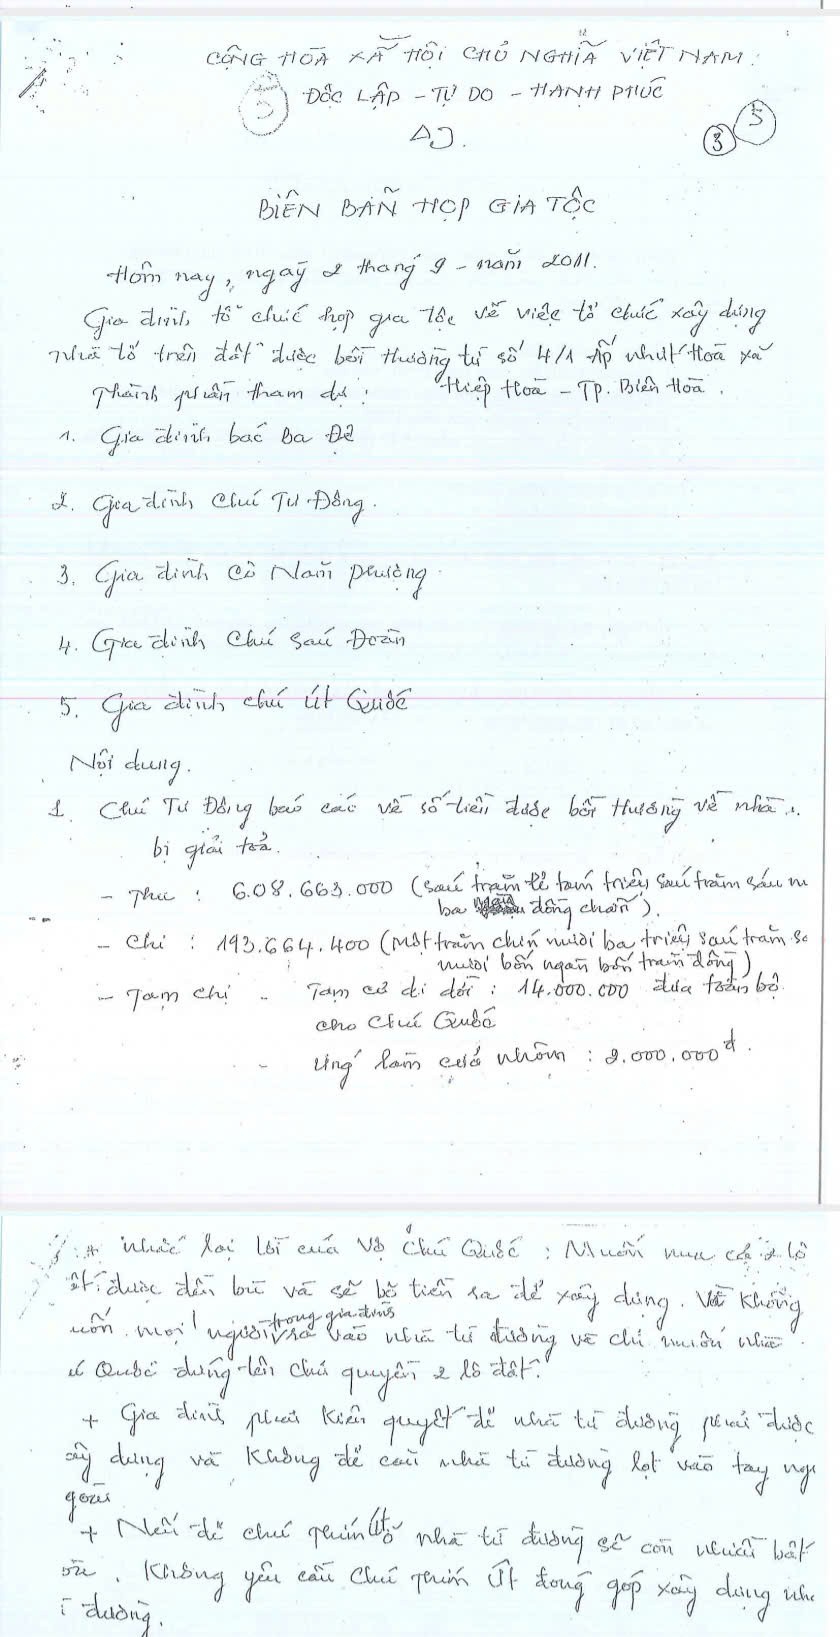 CỘNG HÒA XÃ HỘI CHỦ NGHĨA VIỆT NAM
ĐỘC LẬP - TỰ DO - HẠNH PHÚC
5
3 5
BIÊN BẢN HỌP GIA TỘC
Hôm nay, ngày 2 tháng 9 - năm 2011.
Gia đình tổ chức họp gia tộc về việc tổ chức xây dựng
nhà tổ trên đất được bồi thường từ số 4/1 ấp nhứt Hoà xã
Hiệp Hoà - TP. Biên Hoà.
Thành phần tham dự:
1. Gia đình bác Ba Đê
2. Gia đình chú Tư Đông.
3. Gia đình cô Năm Phường
4. Gia đình Chú Sáu Đoàn
5. Gia đình chú Út Quốc
Nội dung.
1. Chú Tư Đông báo cáo về số tiền được bồi thường về nhà
bị giải toả.
- Thu : 608.663.000 (sáu trăm lẻ tám triệu sáu trăm sáu m
ba đồng chẵn).
- Chi : 193.664.400 (Một trăm chín mươi ba triệu sáu trăm sá
mươi bốn ngàn bốn trăm đồng)
- Tạm chi - Tạm cư di dời : 14.000.000 đưa toàn bộ
cho chú Quốc
- Ứng làm cửa nhôm : 2.000.000đ.
+ nhắc lại lời của Vợ Chú Quốc : Muốn mua cả 2 lô
được đền bù và sẽ bỏ tiền ra để xây dựng. Và Không
mọi người trong gia đình vào nhà từ đường và chỉ muốn nhà
Quốc đứng tên chủ quyền 2 lô đất.
+ Gia đình phải kiên quyết để nhà từ đường phải được
dựng và Không để cái nhà từ đường lọt vào tay ng
goài
+ Nếu để chú thím út nhà từ đường sẽ còn nhiều bất
ổn. Không yêu cầu Chú Thím Út đóng góp xây dựng nhà
từ đường.